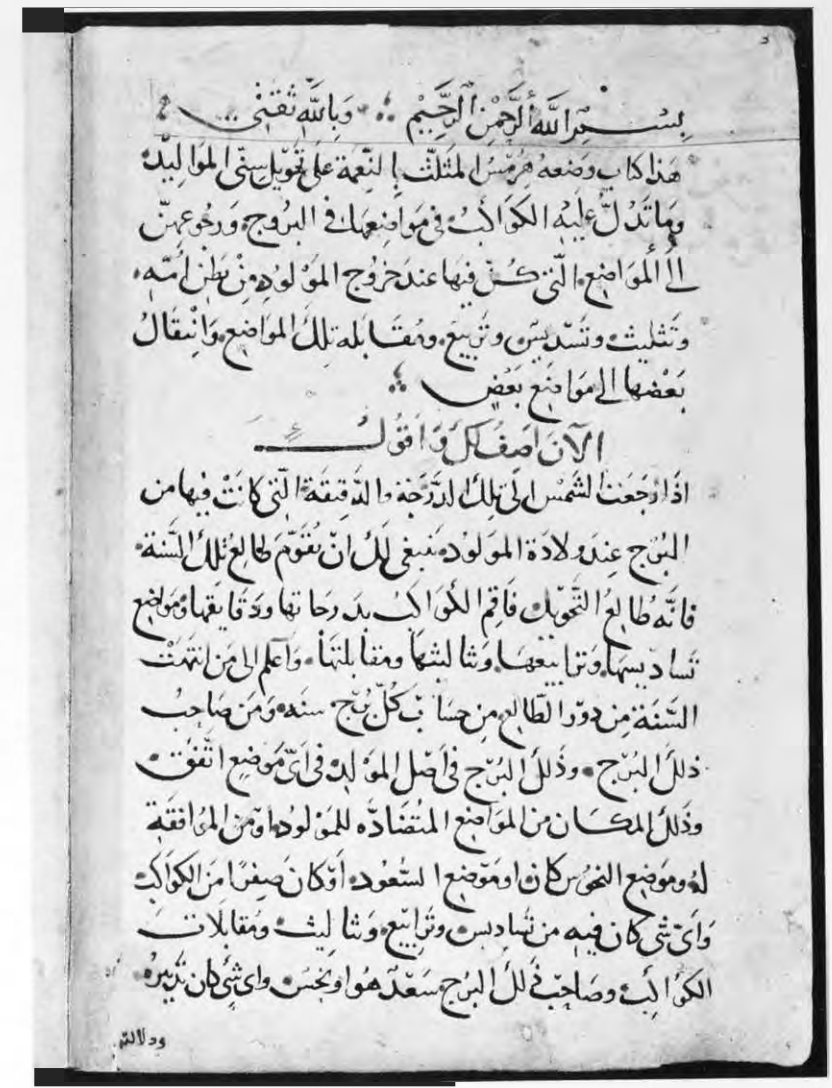 بسم الله الرحمن الرحيم وبالله ثقتي
هذا كتاب وضعه هرمس المثلث بالنعمة على تحويل سني المواليد
وما تدل عليه الكواكب في مواضعها في البروج ورجوعهن
الى المواضع التي كن فيها عند خروج المولود من بطن امه
وتثليث وتسديس وتربيع ومقابلة تلك المواضع وانتقال
بعضها الى مواضع بعض
الآن اصف لك واقول
اذا رجعت الشمس الى تلك الدرجة والدقيقة التي كانت فيها من
البرج عند ولادة المولود ينبغي لك ان تقوم طالع تلك السنة
فانه طالع التحويل فاقم الكواكب بدرجاتها ودقايقها ومواضع
تساديسها وترابيعها وتثاليثها ومقابلتها واعلم الى من انتهت
السنة من دور الطالع من حساب كل برج سنه ومن صاحب
ذلك البرج وذلك البرج في اصل المولد في اي موضع اتفق
وذلك المكان من المواضع المتضاده للمولود او من الموافقة
له وموضع النحوس كان او موضع السعود او كان صفرا من الكواكب
واي شي كان فيه من تساديس وترابيع وتثاليث ومقابلات
الكواكب وصاحب ذلك البرج سعد هو او نحس واي شي كان تدبيره
ودلالته